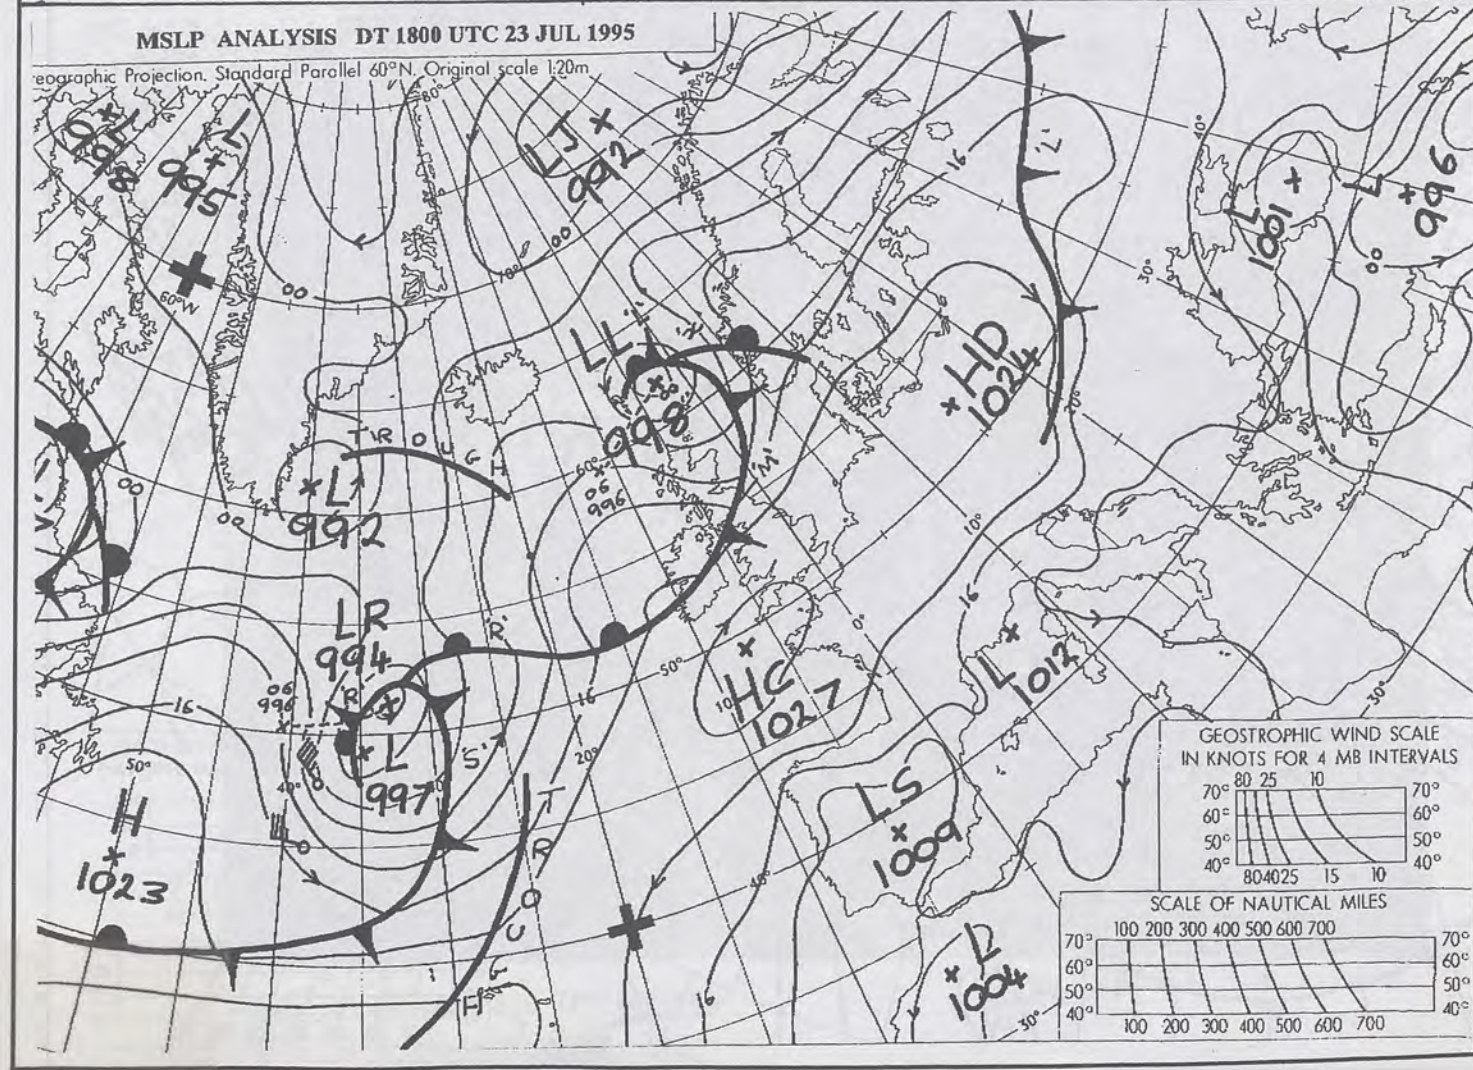 MSLP ANALYSIS DT 1800 UTC 23 JUL 1995
reographic Projection. Standard Parallel 60°N. Original scale 1:20m
80°
L
998
L
995
L
992
16
'L'
40°
L
1001
L
996
00
60°W
00
00
70°
30°
LL
998
HD
1024
TROUGH
60°
06
996
'M'
00
L
992
00
10°
LR
994
'R'
16
0°
06
996
R
16
50°
HC
1027
10°
L
1012
30°
50°
L
997
'S'
20°
40°
H
1023
TROUGH
LS
1009
40°
16
L
1004
30°
GEOSTROPHIC WIND SCALE
IN KNOTS FOR 4 MB INTERVALS
80 25 10
70° 70°
60° 60°
50° 50°
40° 40°
804025 15 10
SCALE OF NAUTICAL MILES
100 200 300 400 500 600 700
70° 70°
60° 60°
50° 50°
40° 40°
100 200 300 400 500 600 700